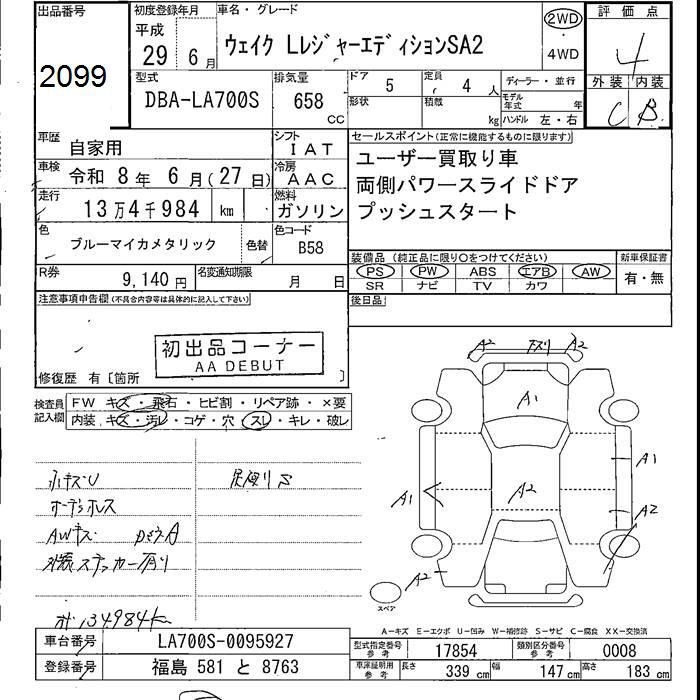 出品番号
2099
初度登録年月
平成
29 6 月
車名・グレード
ウェイク LレジャーエディションSA2
2WD
・
4WD
評価点
4
外装 内装
C B
型式
DBA-LA700S
排気量
658
CC
ドア 5
形状
定員 4 人
積載 kg
ディーラー・並行
モデル年式 年
ハンドル 左・右
車歴
自家用
シフト
IAT
車検
令和 8 年 6 月 (27 日)
冷房
AAC
走行
13万4千984 km
燃料
ガソリン
色
ブルーマイカメタリック
色替
色コード
B58
R券
9,140 円
名変通知期限
月 日
セールスポイント(正常に機能するものに限ります)
ユーザー買取り車
両側パワースライドドア
プッシュスタート
装備品 (純正品に限り〇をつけてください)
PS PW ABS エアB AW
SR ナビ TV カワ
新車保証書
有・無
後日品
注意事項申告欄 (不具合内容等は具体的に記入して下さい)
初出品コーナー
AA DEBUT
修復歴 有〔箇所 〕
検査員
記入欄
FW キズ・飛石・ヒビ割・リペア跡・×要
内装 キズ・汚レ・コゲ・穴・スレ・キレ・破レ
AWキズ
外装ステッカー有り
足廻りS
134984k
A2 キズリ A2
A1
A2
A1
A1
A2
A2
スペア
A-キズ E-エクボ U-凹み W-補修跡 S-サビ C-腐食 XX-交換済
車台番号
LA700S-0095927
登録番号
福島 581 と 8763
型式指定番号
参考
17854
類別区分番号
参考
0008
車庫証明用
参考
長さ 339 cm 幅 147 cm 高さ 183 cm